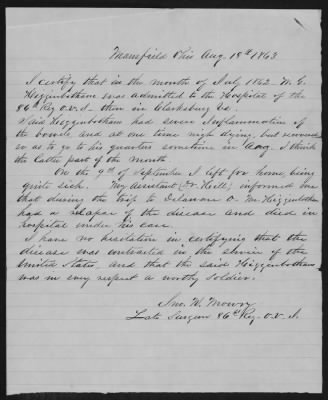 Mansfield Ohio Aug. 18th 1863
I certify that in the month of July 1862 - W. C.
Higginbotham was admitted to the Hospital of the
86th Reg O.V.I - then in Clarksburg Va.
Said Higginbotham had severe Inflammation of
the bowels, and at one time nigh dying, but recovered
so as to go to his quarters sometime in Aug. I think
the latter part of the month
On the 9th of September I left for home being
quite sick. My assistant (Dr Hill) informed me
that during the trip to Delaware O - Mr. Higginbotham
had a relapse of the disease and died in
hospital under his care.
I have no hesitation in certifying that the
disease was contracted in the service of the
United States, and that the said Higginbotham
was in every respect a worthy soldier.
Jno. W. Mowry
Late Surgeon 86th Reg. O.V.I.